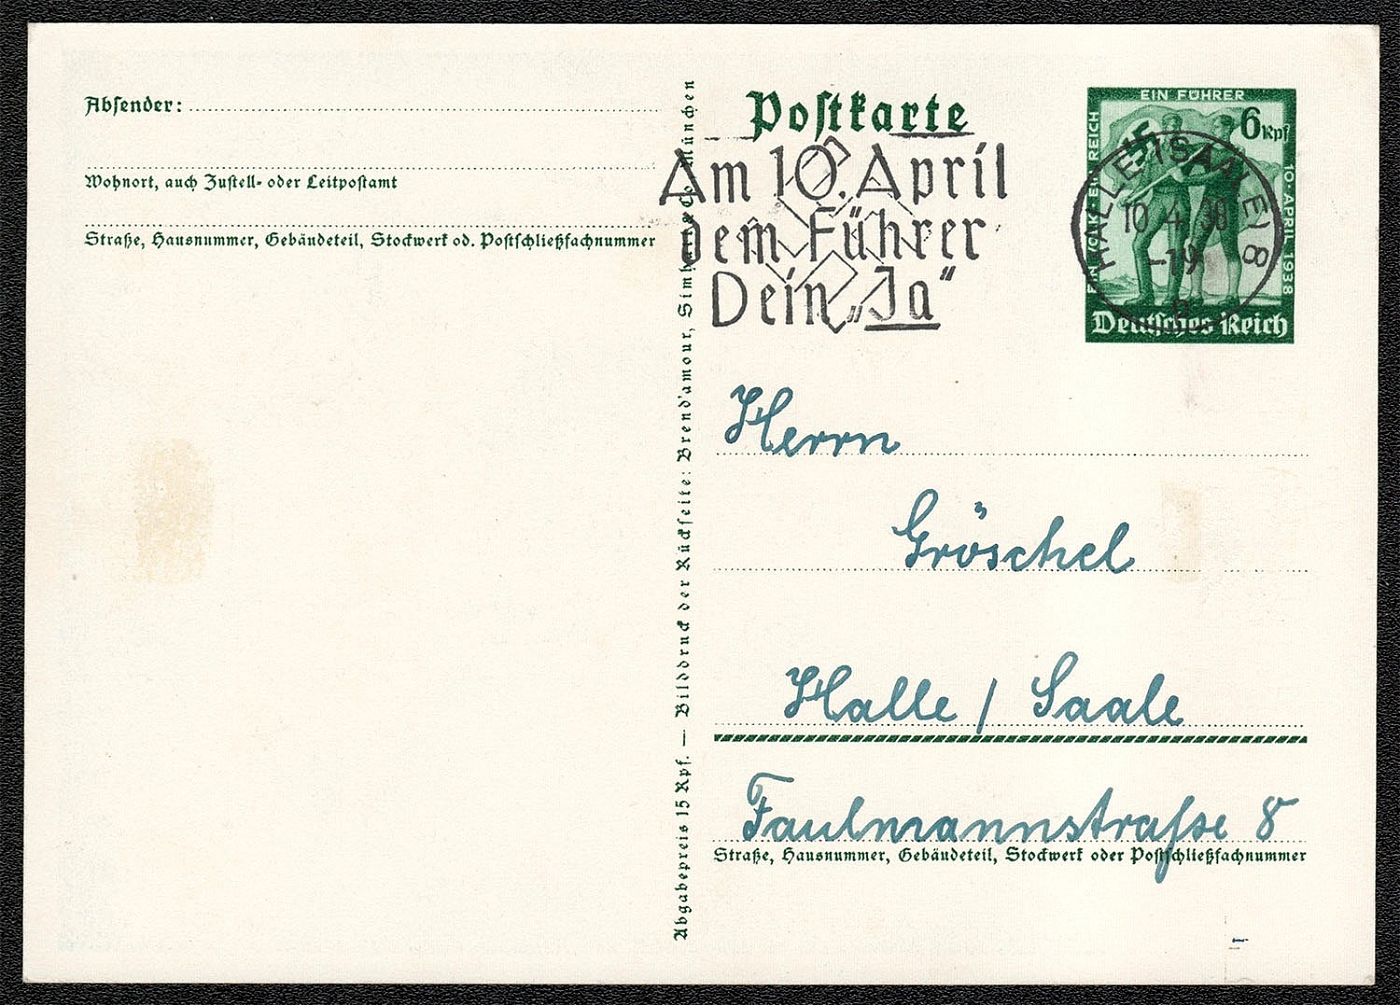 Absender:
Wohnort, auch Zustell- oder Leitpostamt
Straße, Hausnummer, Gebäudeteil, Stockwerk od. Postschließfachnummer
Abgabepreis 15 Rpf. — Bilddruck der Rückseite: Brend'amour, Simhart & Co., München
Postkarte
Am 10. April
dem Führer
Dein „Ja“
EIN FÜHRER
EIN VOLK EIN REICH
6 Rpf
10. APRIL 1938
Deutsches Reich
HALLE (SAALE) 8
10.4.38
-19
Herrn
Gröschel
Halle / Saale
Faulmannstraße 8
Straße, Hausnummer, Gebäudeteil, Stockwerk oder Postschließfachnummer